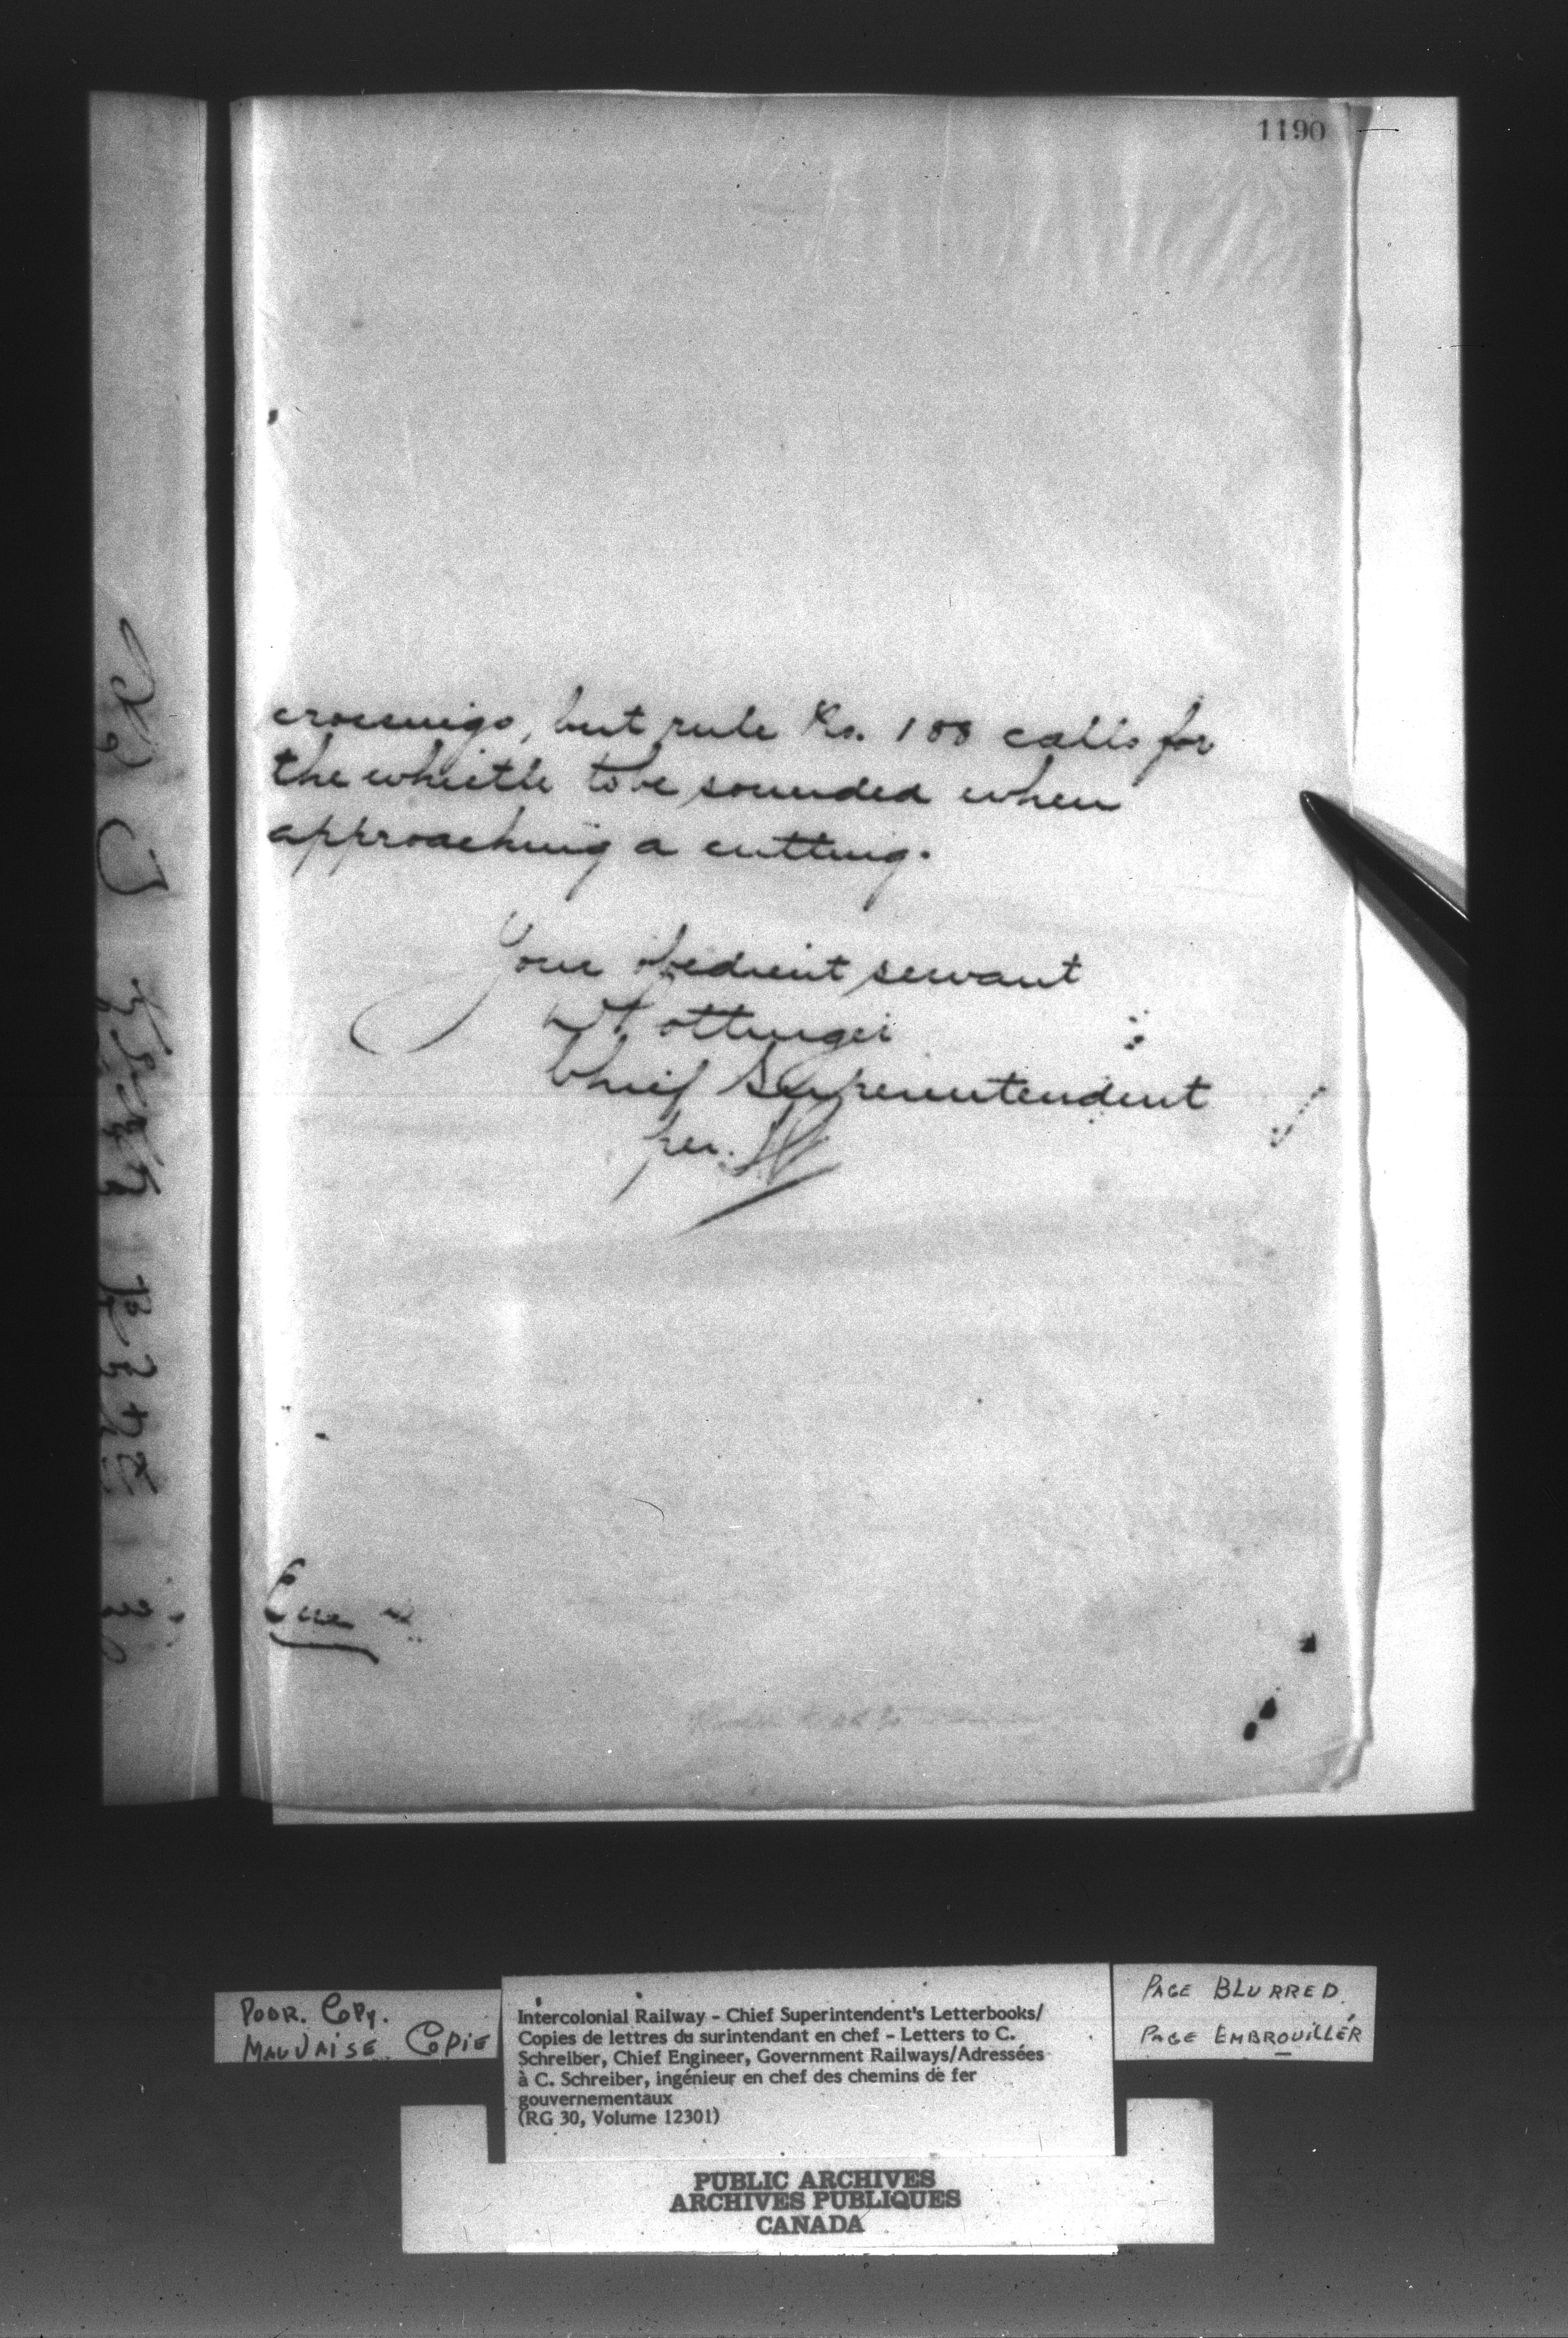 1190
crossings, but rule No. 188 calls for
the whistle to be sounded when
approaching a cutting.
Your obedient servant
D Pottinger
Chief Superintendent
per.
POOR. COPY.
MAUVAISE COPIE
Intercolonial Railway - Chief Superintendent's Letterbooks/
Copies de lettres du surintendant en chef - Letters to C.
Schreiber, Chief Engineer, Government Railways/Adressées
à C. Schreiber, ingénieur en chef des chemins de fer
gouvernementaux
(RG 30, Volume 12301)
PAGE BLURRED
PAGE EMBROUILLÉR
PUBLIC ARCHIVES
ARCHIVES PUBLIQUES
CANADA